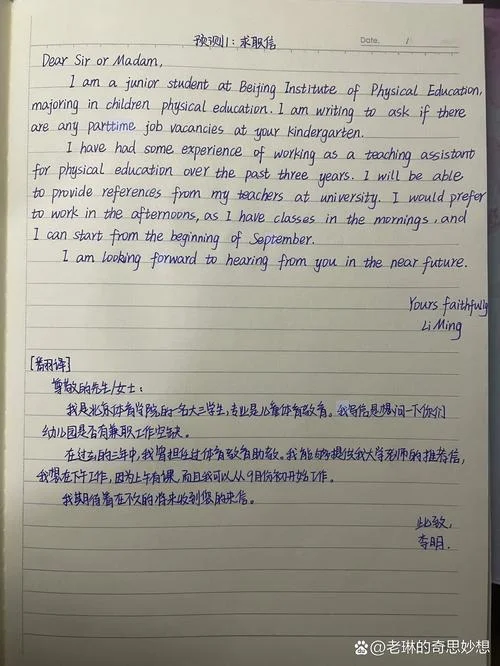 预测1:求职信
Date. /
Dear Sir or Madam,
I am a junior student at Beijing Institute of Physical Education,
majoring in children physical education. I am writing to ask if there
are any parttime job vacancies at your kindergarten.
I have had some experience of working as a teaching assistant
for physical education over the past three years. I will be able
to provide references from my teachers at university. I would prefer
to work in the afternoons, as I have classes in the mornings, and
I can start from the beginning of September.
I am looking forward to hearing from you in the near future.
Yours faithfully
Li Ming
[翻译]
尊敬的先生/女士:
我是北京体育学院的一名大三学生,专业是儿童体育教育。我写信是想问一下你们
幼儿园是否有兼职工作空缺。
在过去的三年中,我曾担任过体育教育助教。我能够提供我大学老师的推荐信,
我想在下午工作,因为上午有课,而且我可以从9月份初开始工作。
我期待着在不久的将来收到您的来信。
此致,
李明.
老琳的奇思妙想